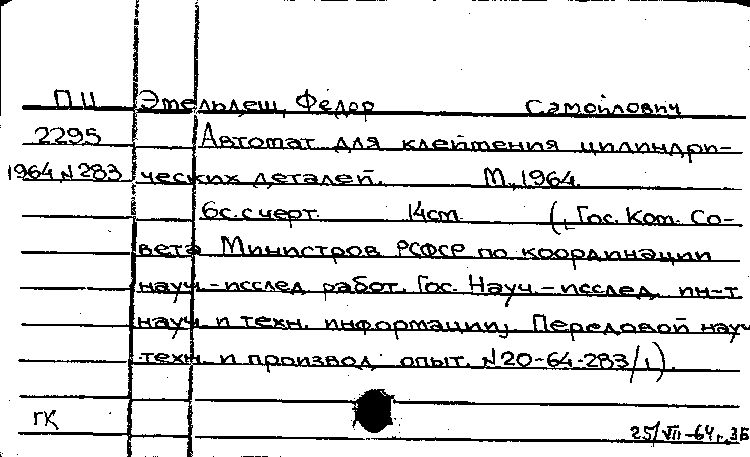 П II Этельдеш, Федор Самойлович
2295 Автомат для клеймения цилиндри-
1964, N283 ческих деталей. М., 1964.
6с. с черт. 14см. (Гос. Ком. Со-
вета Министров РСФСР по координации
науч.-исслед. работ. Гос. Науч.-исслед. ин-т
науч. и техн. информации. Передовой науч.
техн. и производ. опыт. N20-64-283/1).
ГК
25/VII-64г. ЗБ